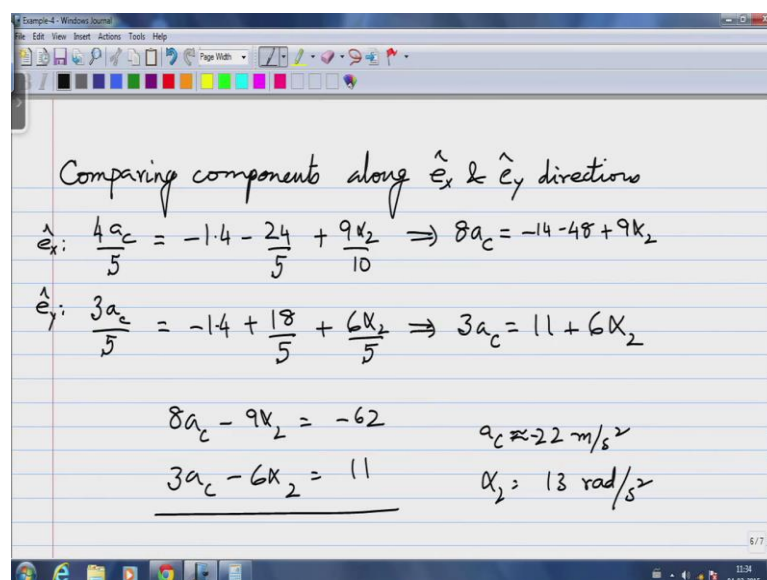 Example-4 - Windows Journal
File Edit View Insert Actions Tools Help
Page Width
Comparing components along ê_x & ê_y directions
ê_x: 4a_c/5 = -1.4 - 24/5 + 9α_2/10 ⇒ 8a_c = -14 - 48 + 9α_2
ê_y: 3a_c/5 = -1.4 + 18/5 + 6α_2/5 ⇒ 3a_c = 11 + 6α_2
8a_c - 9α_2 = -62
3a_c - 6α_2 = 11
a_c ≈ -22 m/s²
α_2 = 13 rad/s²
6/7
11:34